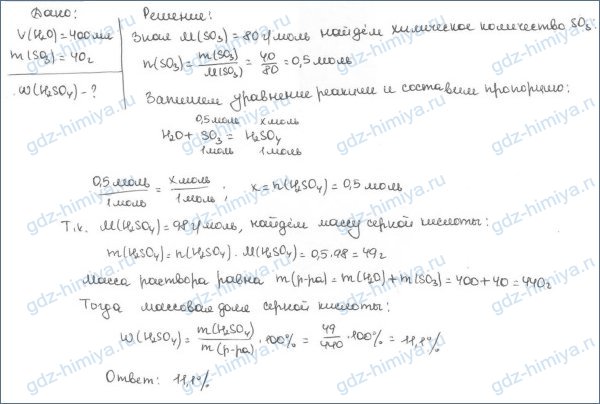 Дано:
V(H₂O)=400мл
m(SO₃)=40г
W(H₂SO₄)-?
Решение:
Зная M(SO₃)=80г/моль найдём химическое количество SO₃.
n(SO₃)= m(SO₃)/M(SO₃) = 40/80 = 0,5моль
Запишем уравнение реакции и составим пропорцию:
0,5моль x моль
H₂O + SO₃ = H₂SO₄
1моль 1моль
0,5моль/1моль = x моль/1моль; x=n(H₂SO₄)=0,5моль
Т.к. M(H₂SO₄)=98г/моль, найдём массу серной кислоты:
m(H₂SO₄)=n(H₂SO₄)·M(H₂SO₄)=0,5·98=49г
Масса раствора равна m(р-ра)=m(H₂O)+m(SO₃)=400+40=440г
Тогда массовая доля серной кислоты:
W(H₂SO₄)= m(H₂SO₄)/m(р-ра) ·100% = 49/440 ·100% = 11,1%
Ответ: 11,1%
gdz-himiya.ru